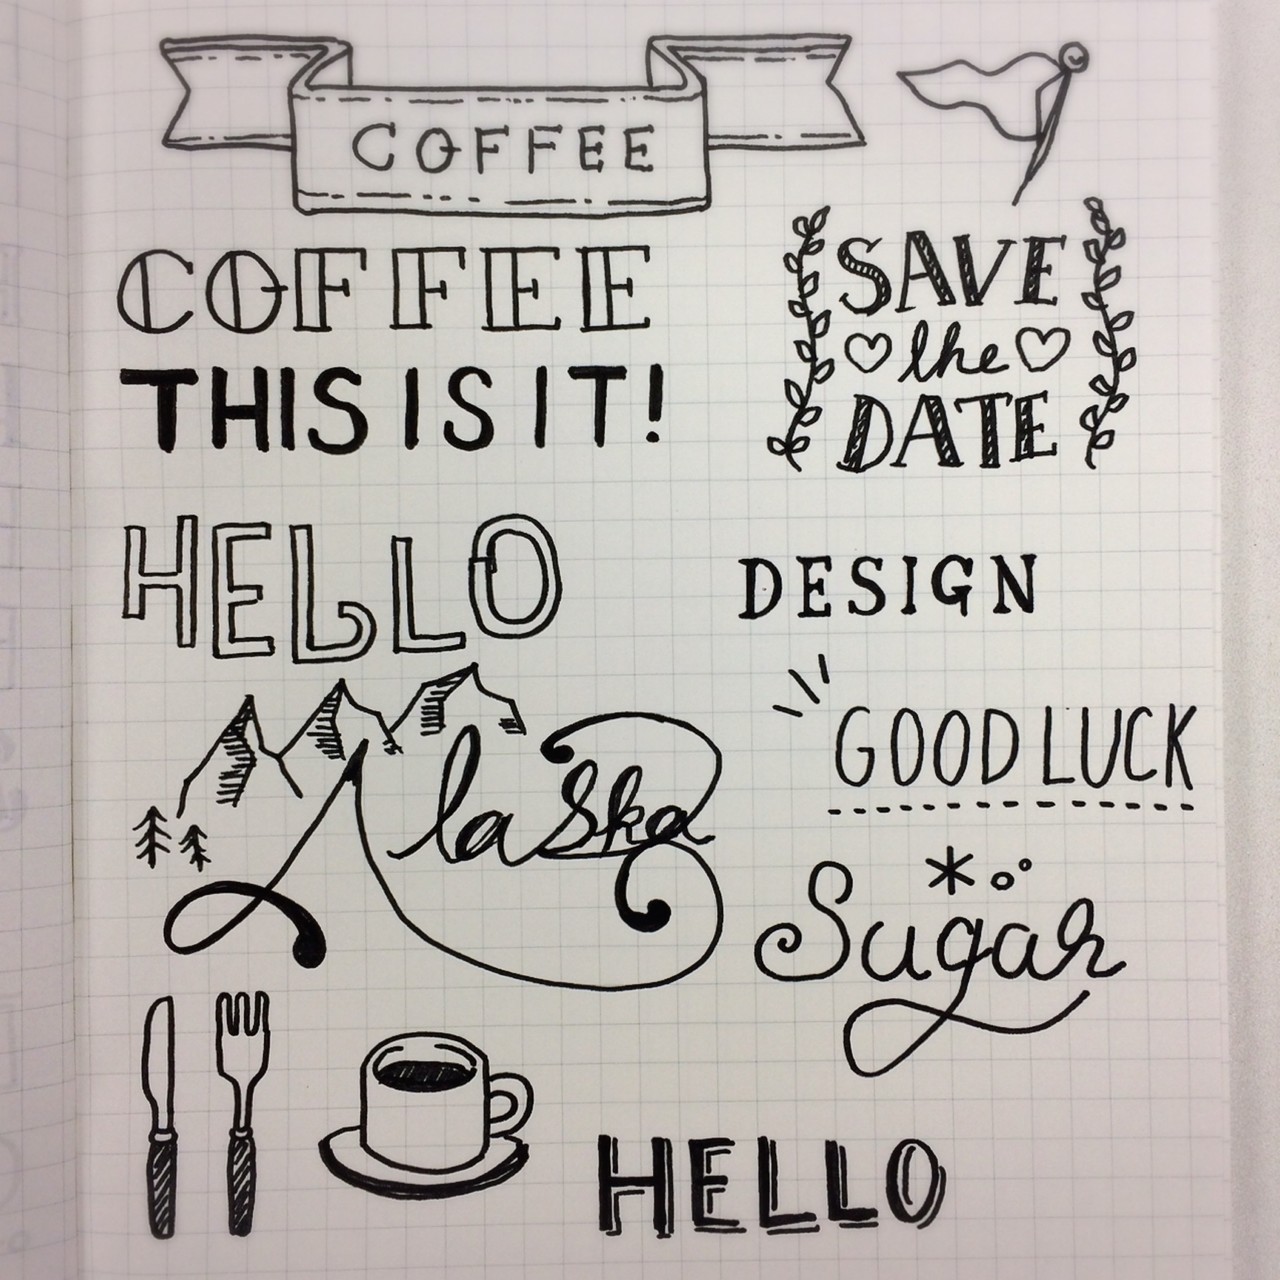 COFFEE
COFFEE
THIS IS IT!
SAVE
the
DATE
HELLO
DESIGN
Alaska
GOOD LUCK
Sugar
HELLO